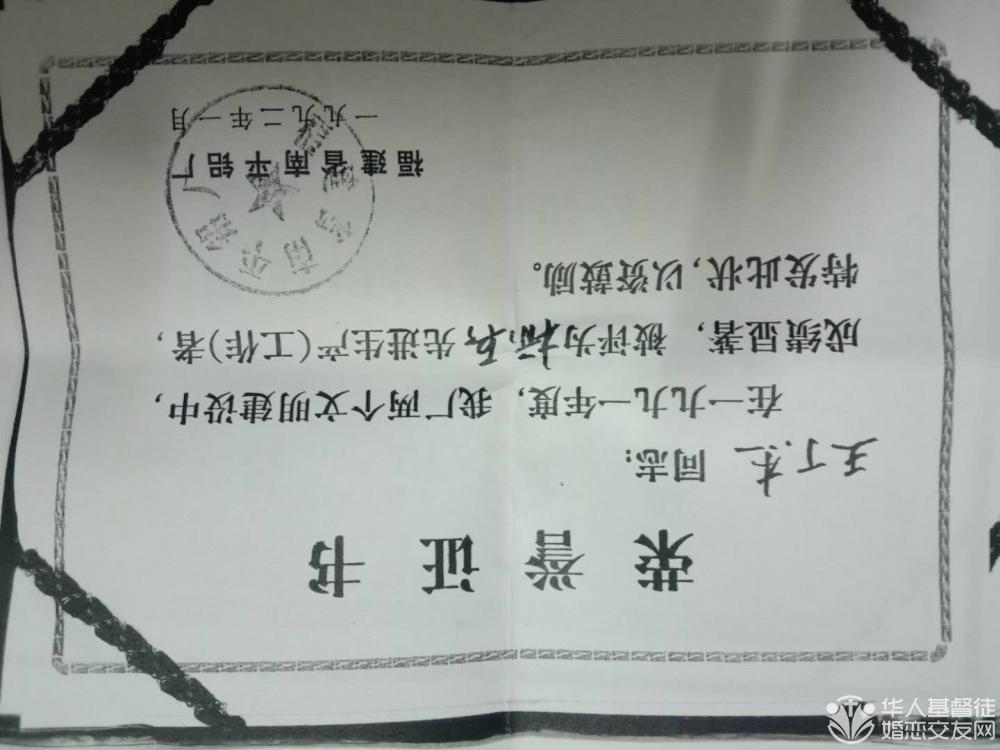 荣誉证书
同志:
在一九九一年度，我厂两个文明建设中，
成绩显著，被评为先进生产(工作)者，
特发此状，以资鼓励。
福建省南平铝厂
一九九二年一月
华人基督徒
婚恋交友网